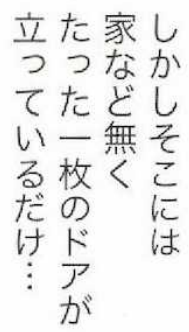 しかしそこには
家など無く
たった一枚のドアが
立っているだけ…